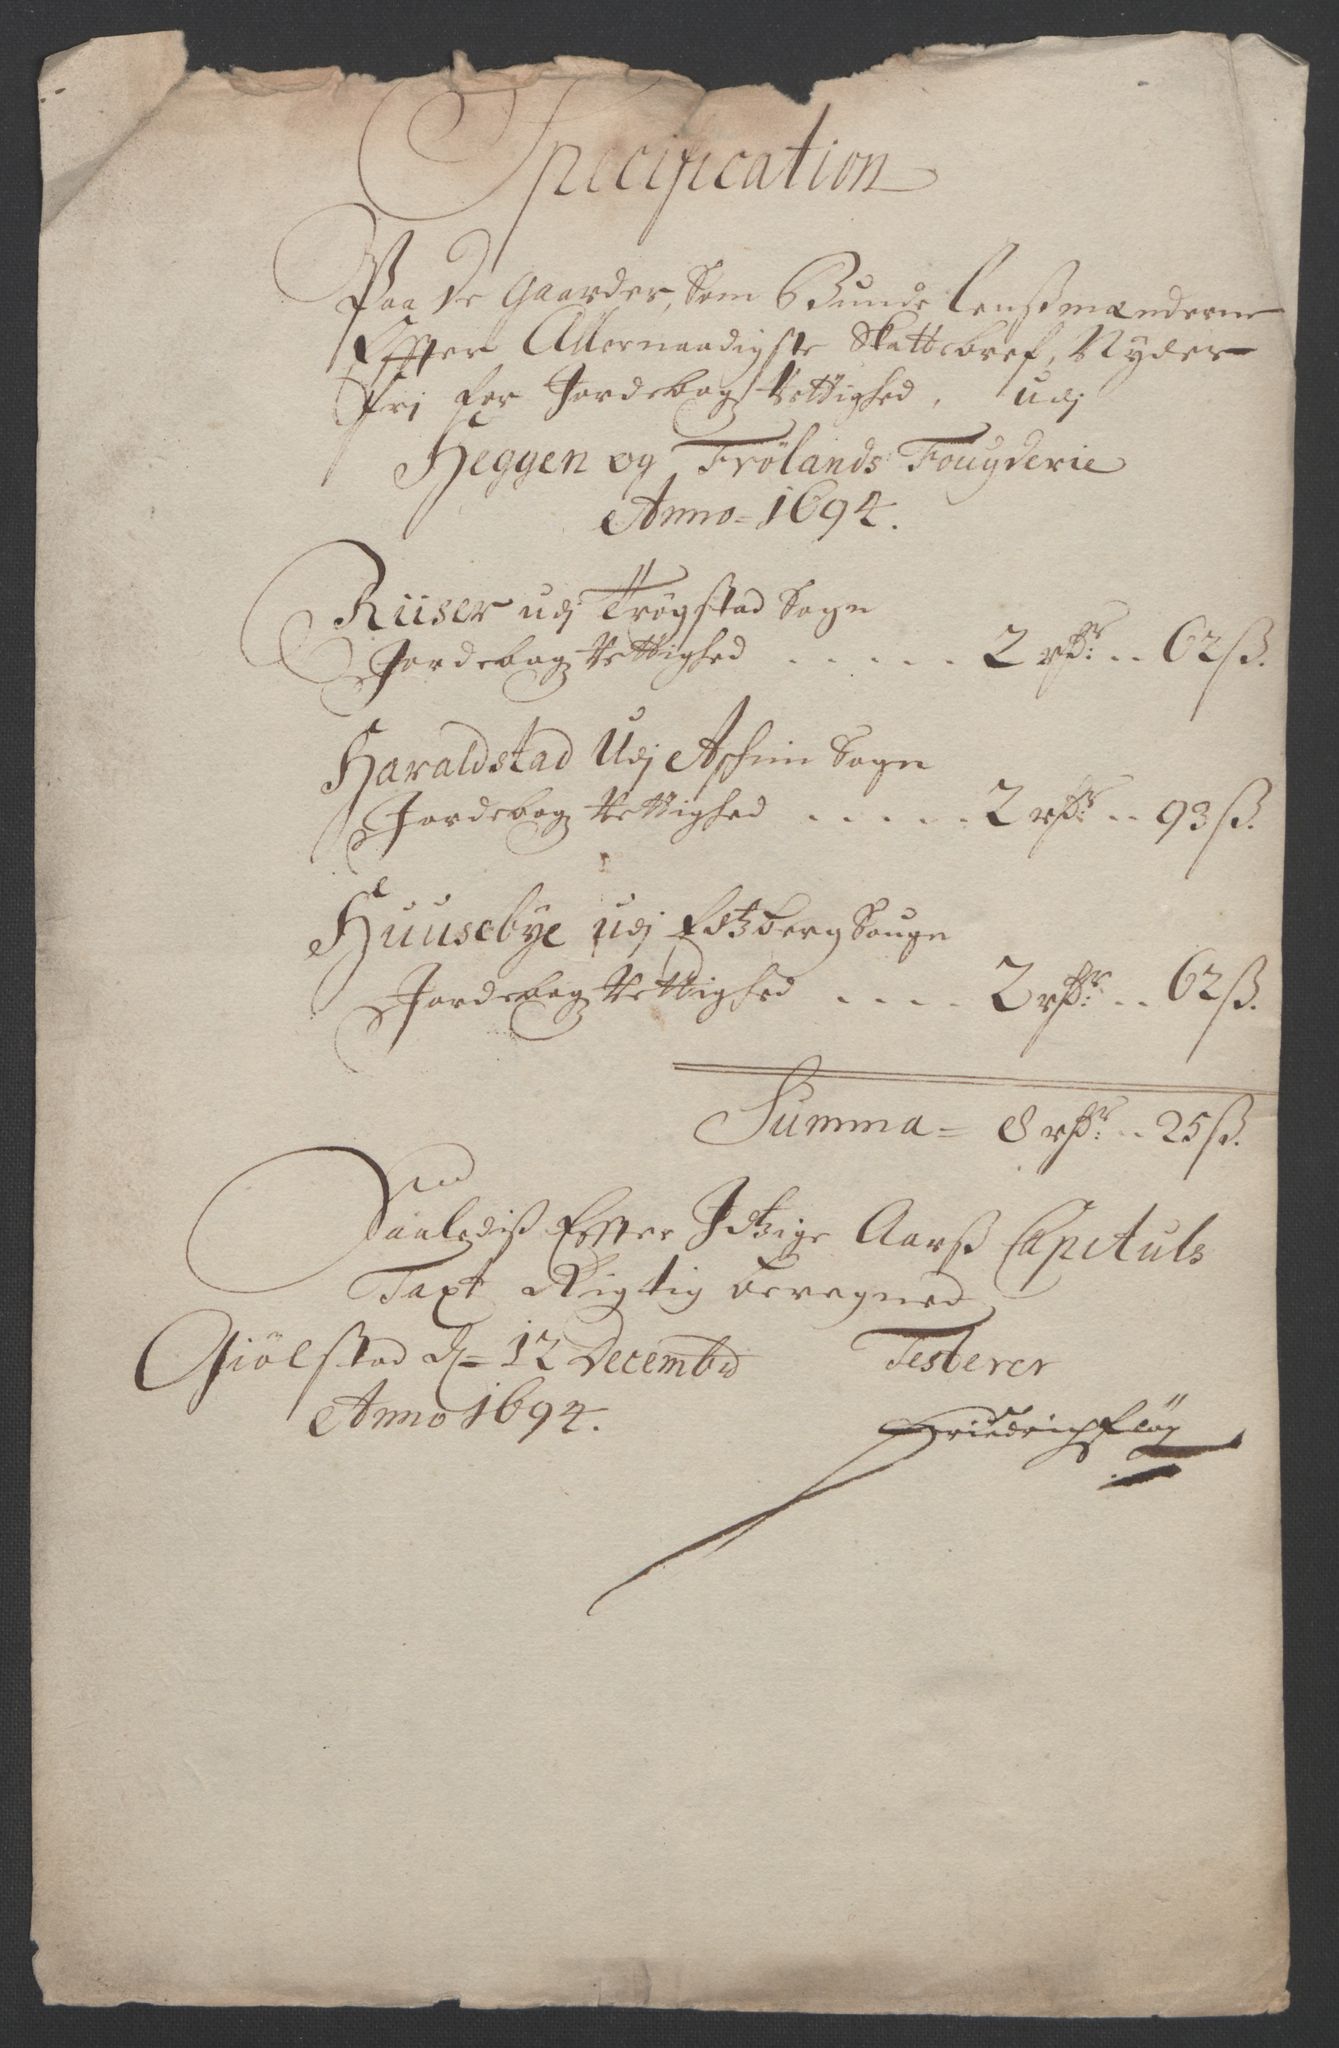 Specification
Paa De Gaarder, Som Bunde Lenßmænderne
Effter Allernaadigste Skattebref, Nyder
fri for Jordebogs Rettighed, udj
Heggen og Frölands Fougderie
Anno 1694.
Riiser udj Trögstad Sogn
Jordebog Rettighed . . . . . 2 rdr: .. 62 ß.
Haraldstad Udj Aschim Sogn
Jordebog Rettighed . . . . . 2 rdr: .. 93 ß.
Huusebye udj Edtzberg Sougn
Jordebog Rettighed . . . . 2 rdr: .. 62 ß.
Summa = 8 rdr: .. 25 ß.
Saalediß Effter Jtzige Aarß Capituls
Taxt Rigtig beregned
Giölstad d = 12 Decembr Testerer
Anno 1694. Friedrich